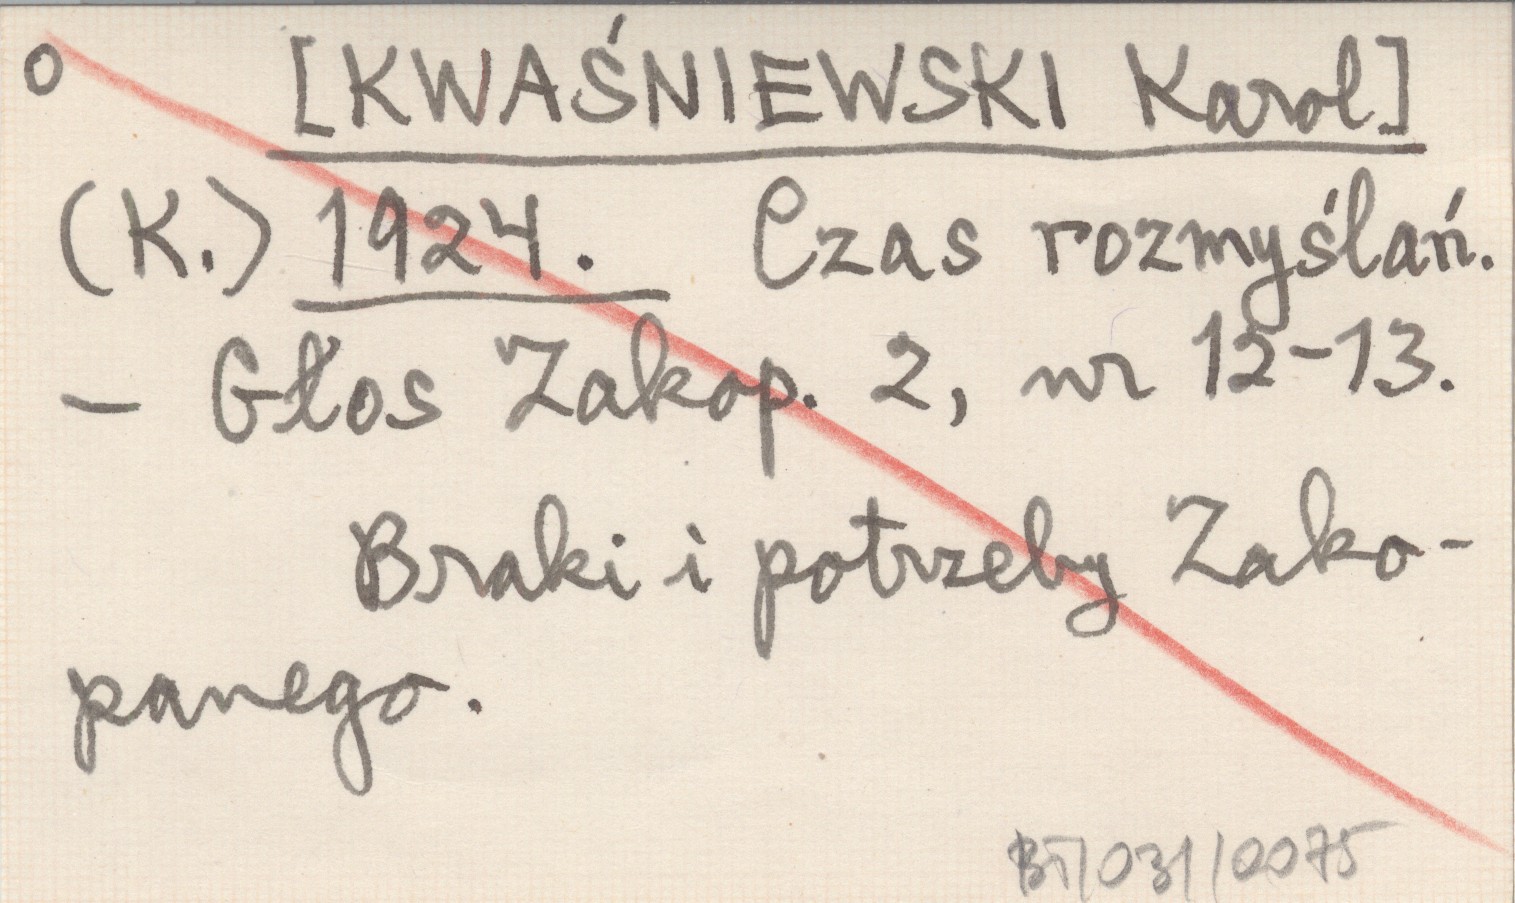 o [KWAŚNIEWSKI Karol]
(K.) 1924. Czas rozmyślań.
- Głos Zakop. 2, nr 12-13.
Braki i potrzeby Zako-
panego.
BT/031/0075